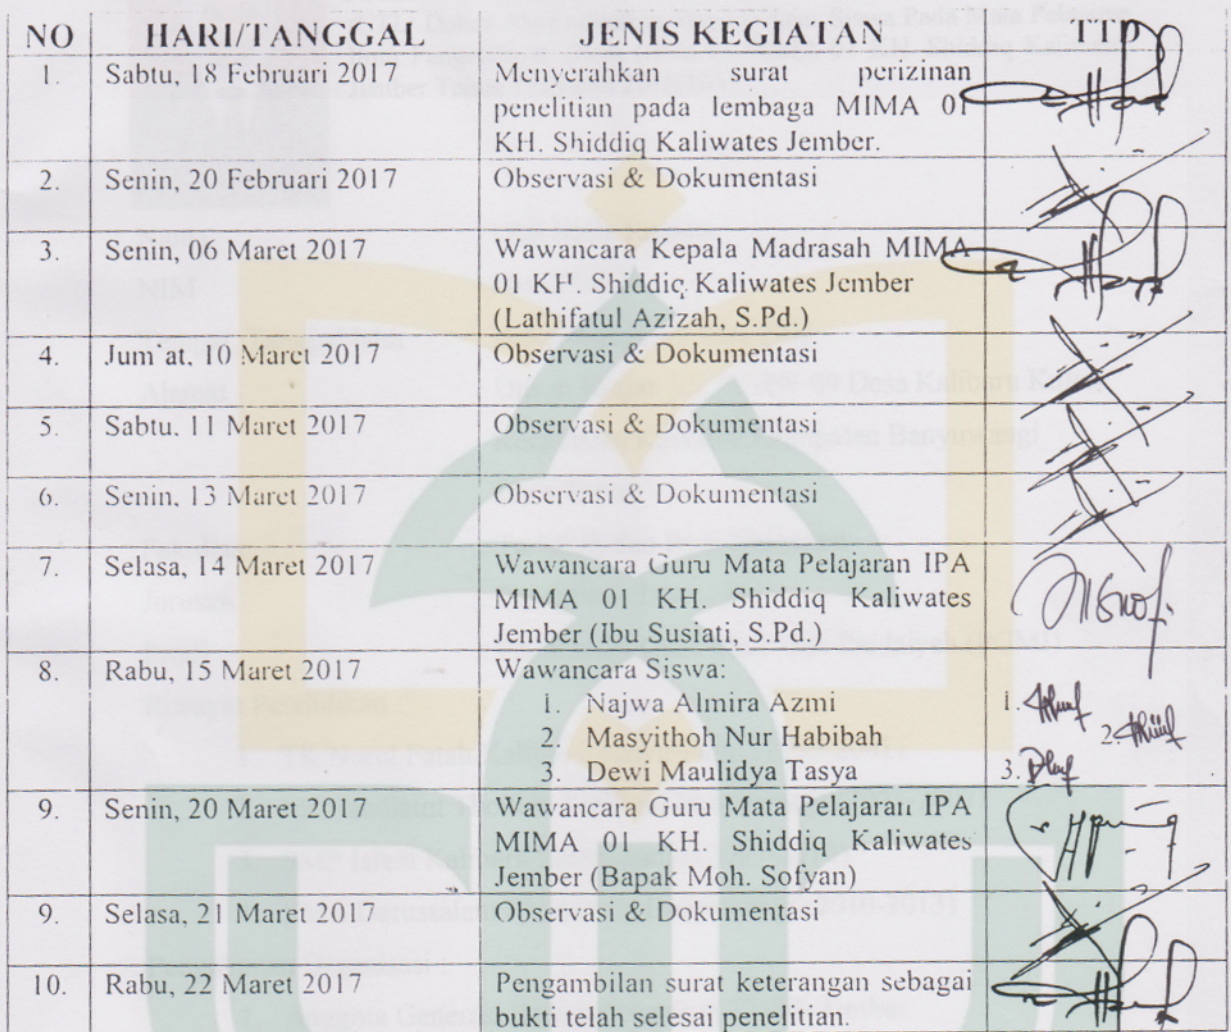 NO HARI/TANGGAL JENIS KEGIATAN TTD
1. Sabtu, 18 Februari 2017 Menyerahkan surat perizinan
penelitian pada lembaga MIMA 01
KH. Shiddiq Kaliwates Jember.
2. Senin, 20 Februari 2017 Observasi & Dokumentasi
3. Senin, 06 Maret 2017 Wawancara Kepala Madrasah MIMA
01 KH. Shiddiq Kaliwates Jember
(Lathifatul Azizah, S.Pd.)
4. Jum'at, 10 Maret 2017 Observasi & Dokumentasi
5. Sabtu, 11 Maret 2017 Observasi & Dokumentasi
6. Senin, 13 Maret 2017 Observasi & Dokumentasi
7. Selasa, 14 Maret 2017 Wawancara Guru Mata Pelajaran IPA
MIMA 01 KH. Shiddiq Kaliwates
Jember (Ibu Susiati, S.Pd.)
8. Rabu, 15 Maret 2017 Wawancara Siswa:
1. Najwa Almira Azmi 1.
2. Masyithoh Nur Habibah 2.
3. Dewi Maulidya Tasya 3.
9. Senin, 20 Maret 2017 Wawancara Guru Mata Pelajaran IPA
MIMA 01 KH. Shiddiq Kaliwates
Jember (Bapak Moh. Sofyan)
9. Selasa, 21 Maret 2017 Observasi & Dokumentasi
10. Rabu, 22 Maret 2017 Pengambilan surat keterangan sebagai
bukti telah selesai penelitian.